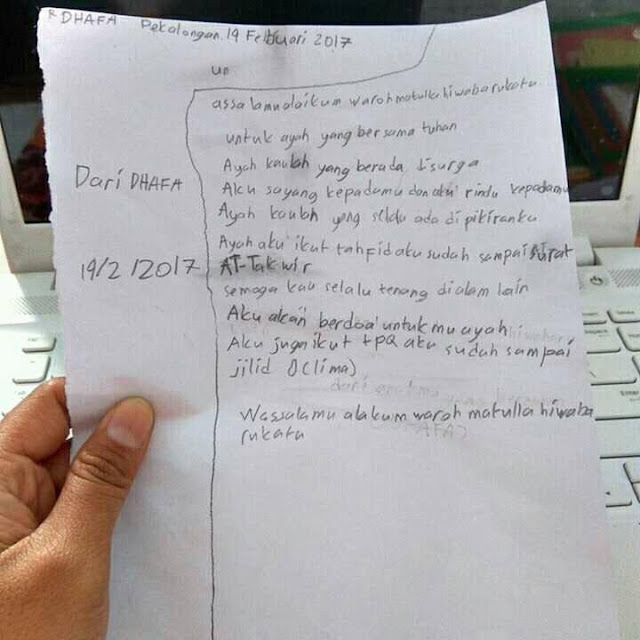 DHAFA Pekalongan, 19 Februari 2017
un
assalamualaikum warohmatullahiwabarukatu
untuk ayah yang bersama tuhan
Ayah kaulah yang berada disurga
Dari DHAFA
Aku sayang kepadamu dan aku rindu kepadamu
Ayah kaulah yang selalu ada dipikiranku
Ayah aku ikut tahfid aku sudah sampai surat
19/2/2017
AT-Takwir
semoga kau selalu tenang dialam lain
Aku akan berdoa untukmu ayah
Aku juga ikut tpQ aku sudah sampai
jilid (lima)
Wassalamu alakum waroh matulla hiwaba
rukatu